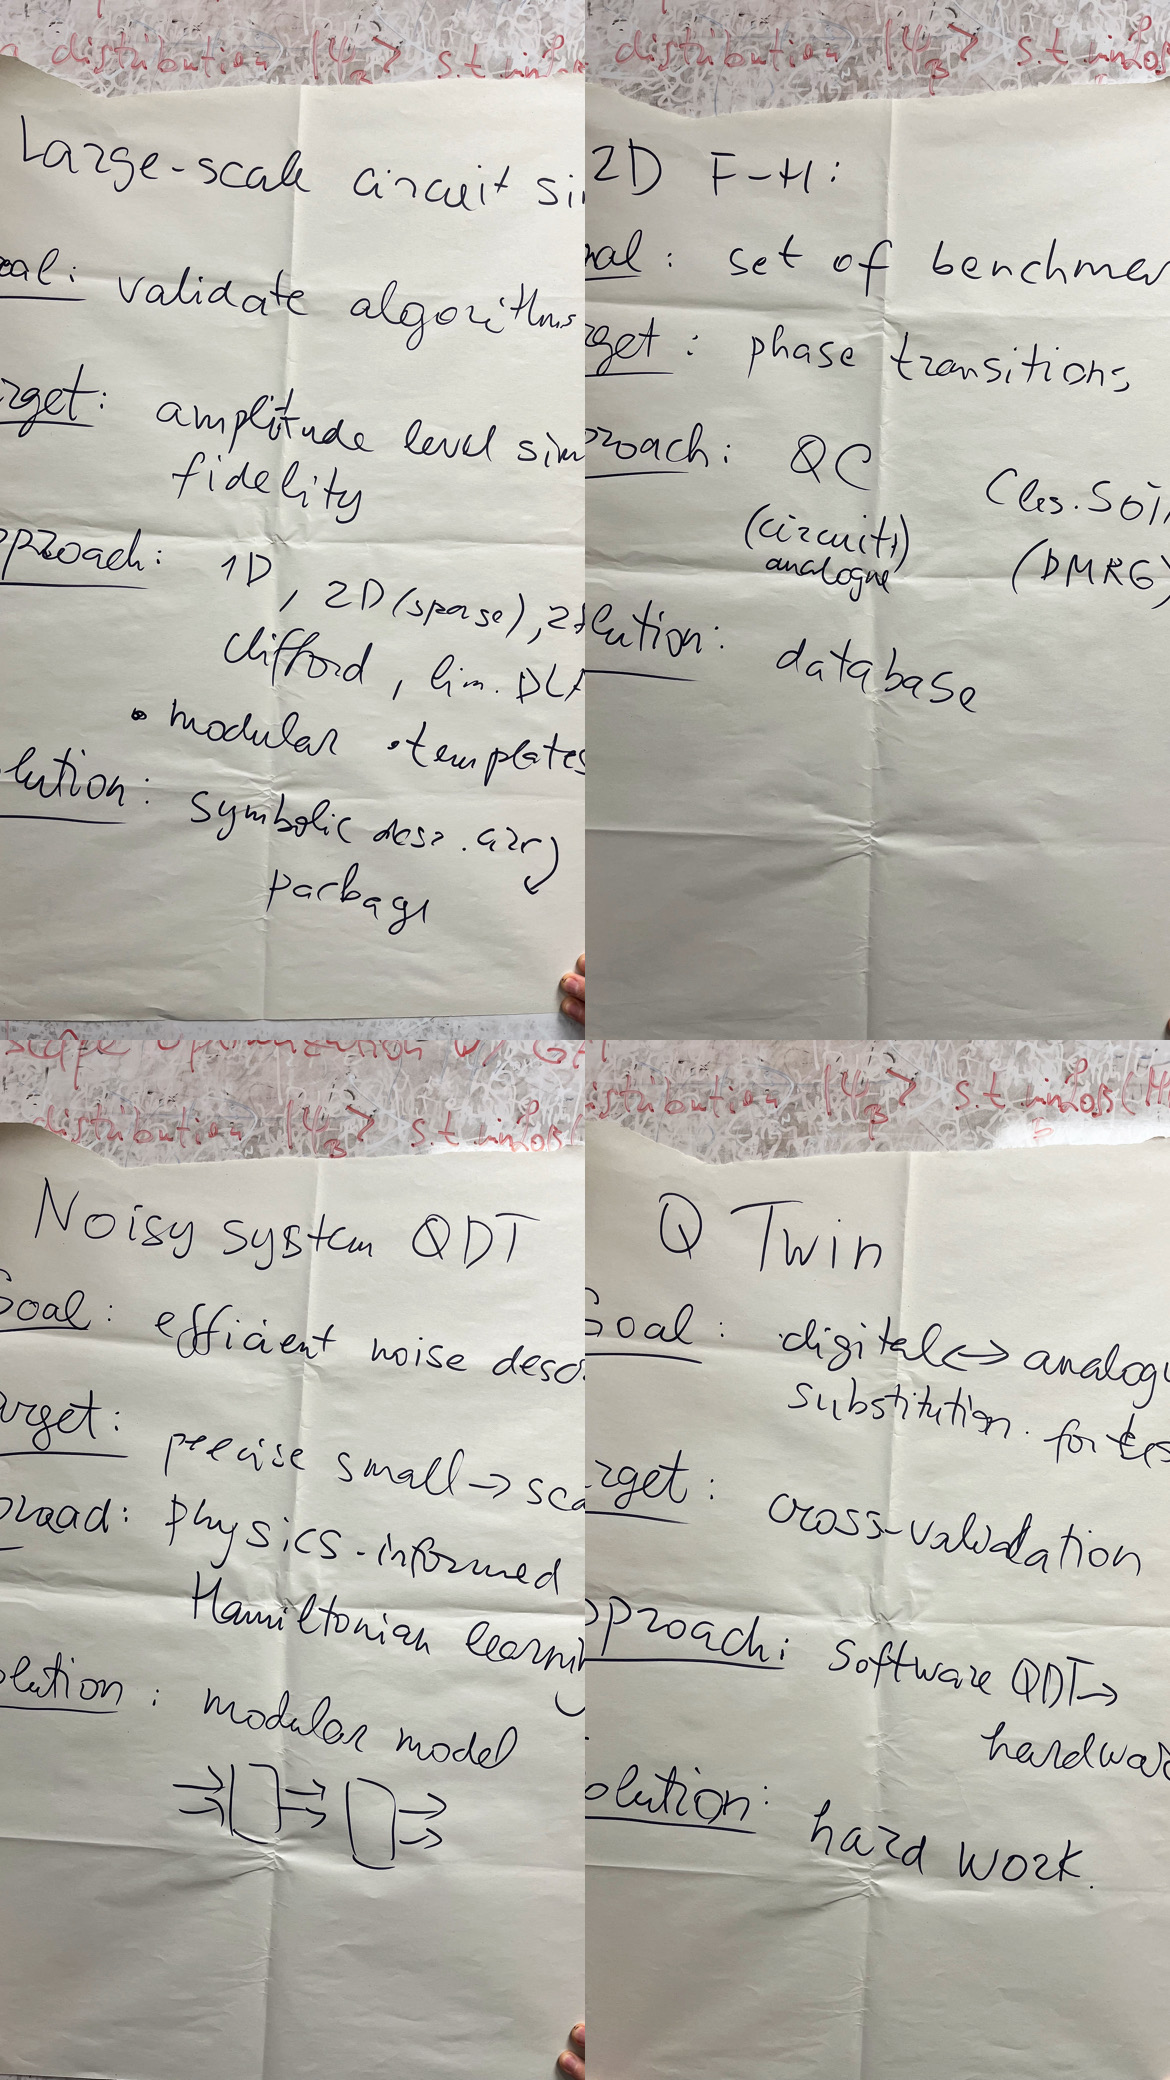 distribution |Ψ_B> s.t
Large-scale circuit
oal: validate algorithms
rget: amplitude level sim
fidelity
pproach: 1D, 2D (sparse),
Clifford, lim. DLA
• modular • templates
lution: symbolic descr. circ
package
distribution |Ψ_B> s.t
2D F-H:
oal: set of benchmar
rget: phase transitions,
proach: QC
(circuits)
analogue
Clas. Sol
(DMRG)
lution: database
distribution |Ψ_B> s.t
Noisy system QDT
Goal: efficient noise desc
arget: precise small → sca
physics-informed
Hamiltonian learnin
olution: modular model
distribution |Ψ_B> s.t
Q Twin
Goal: digital <-> analogu
substitution for tes
rget: cross-validation
pproach: Software QDT →
hardwar
olution: hard work.